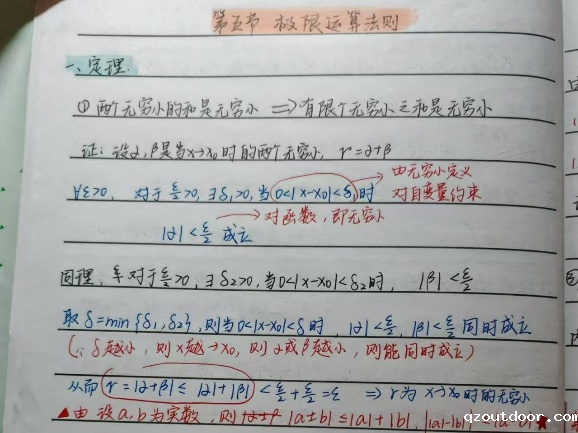 第五节 极限运算法则
一、定理
① 两个无穷小的和是无穷小 ⟹ 有限个无穷小之和是无穷小
证: 设α,β是当x→x₀时的两个无穷小, r=α+β
∀ε>0, 对于ε/2>0, ∃δ₁>0, 当0<|x-x₀|<δ₁时
由无穷小定义
对自变量约束
|α|<ε/2 成立
→ 对函数, 即无穷小
同理, 对于ε/2>0, ∃δ₂>0, 当0<|x-x₀|<δ₂时, |β|<ε/2
取δ=min{δ₁,δ₂}, 则当0<|x-x₀|<δ时, |α|<ε/2, |β|<ε/2同时成立
(∵δ越小, 则x越→x₀, 则α或β越小, 则能同时成立)
从而 r=|α+β|≤|α|+|β|<ε/2+ε/2=ε ⟹ r为x→x₀时的无穷小
▲由设a,b为实数, 则 |a±b|≤|a|+|b|, ||a|-|b||≤ ★
qzoutdoor.com